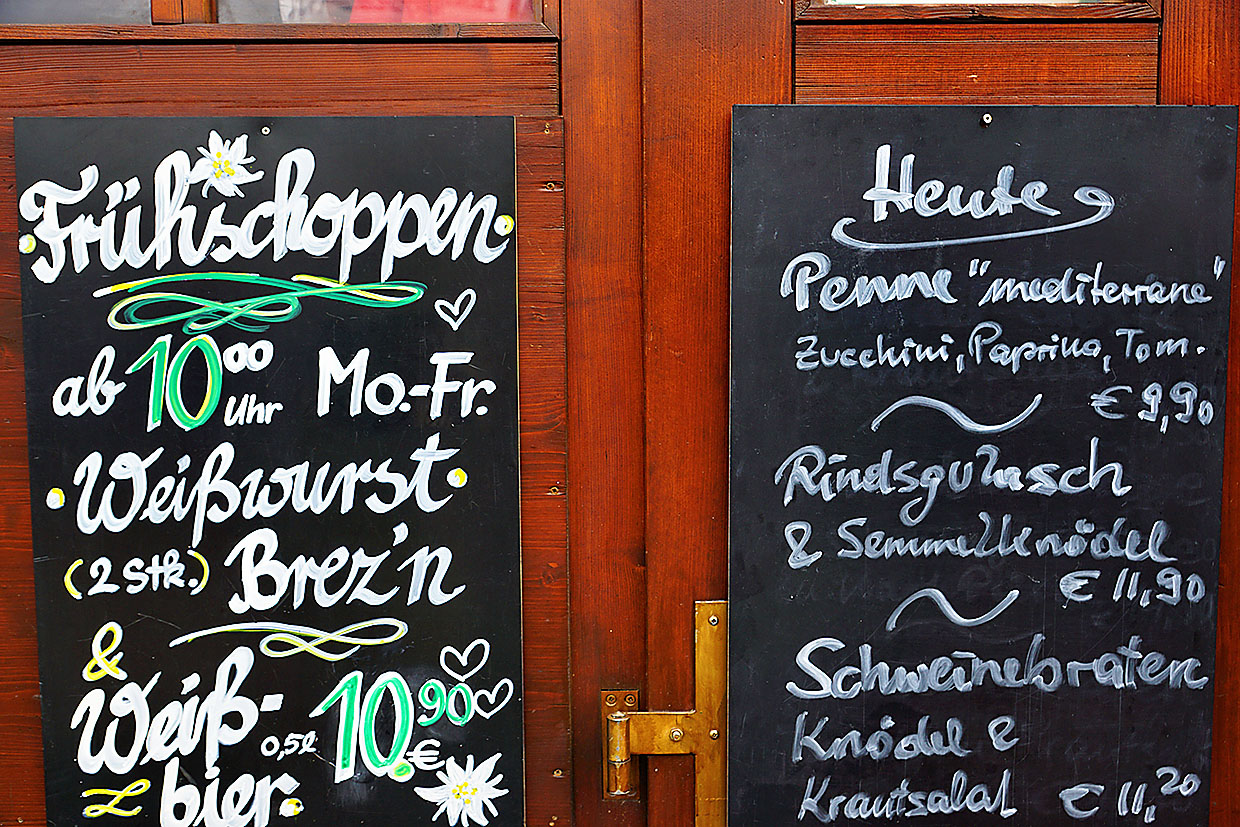 Frühschoppen
ab 10 00 Uhr Mo.-Fr.
Weißwurst
(2 Stk.) Brez'n
&
Weiß-
bier 0,5l 10.90 €
Heute
Penne "mediterrane"
Zucchini, Paprika, Tom.
€ 9,90
Rindsgulasch
& Semmelknödel
€ 11,90
Schweinebraten
Knödel &
Krautsalat € 11,20